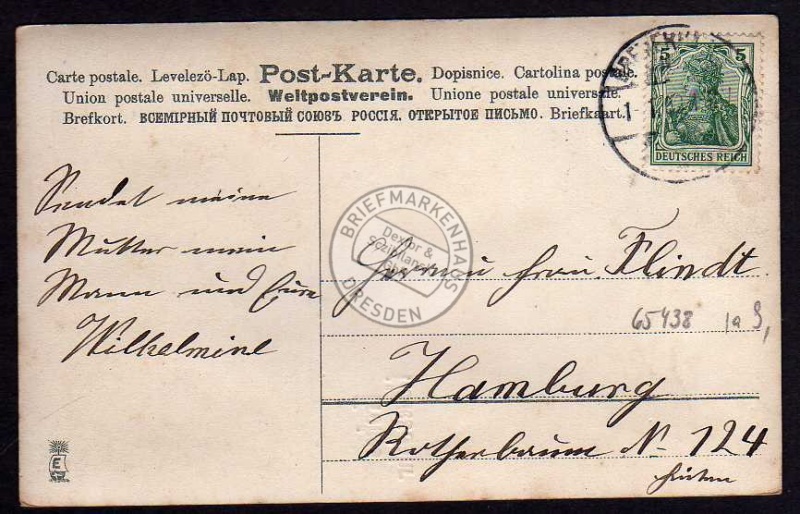 Carte postale. Levelezö-Lap. Post-Karte. Dopisnice. Cartolina postale.
Union postale universelle. Weltpostverein. Unione postale universale.
Brefkort. ВСЕМІРНЫЙ ПОЧТОВЫЙ СОЮЗЪ РОССІЯ. ОТКРЫТОЕ ПИСЬМО. Briefkaart.
5 5
DEUTSCHES REICH
Sendet meine
Mutter mein
Mann und Eure
Wilhelmine
Frau Flindt
65438 1a
Hamburg
Rotherbaum No 124
BRIEFMARKENHAUS
DRESDEN
E